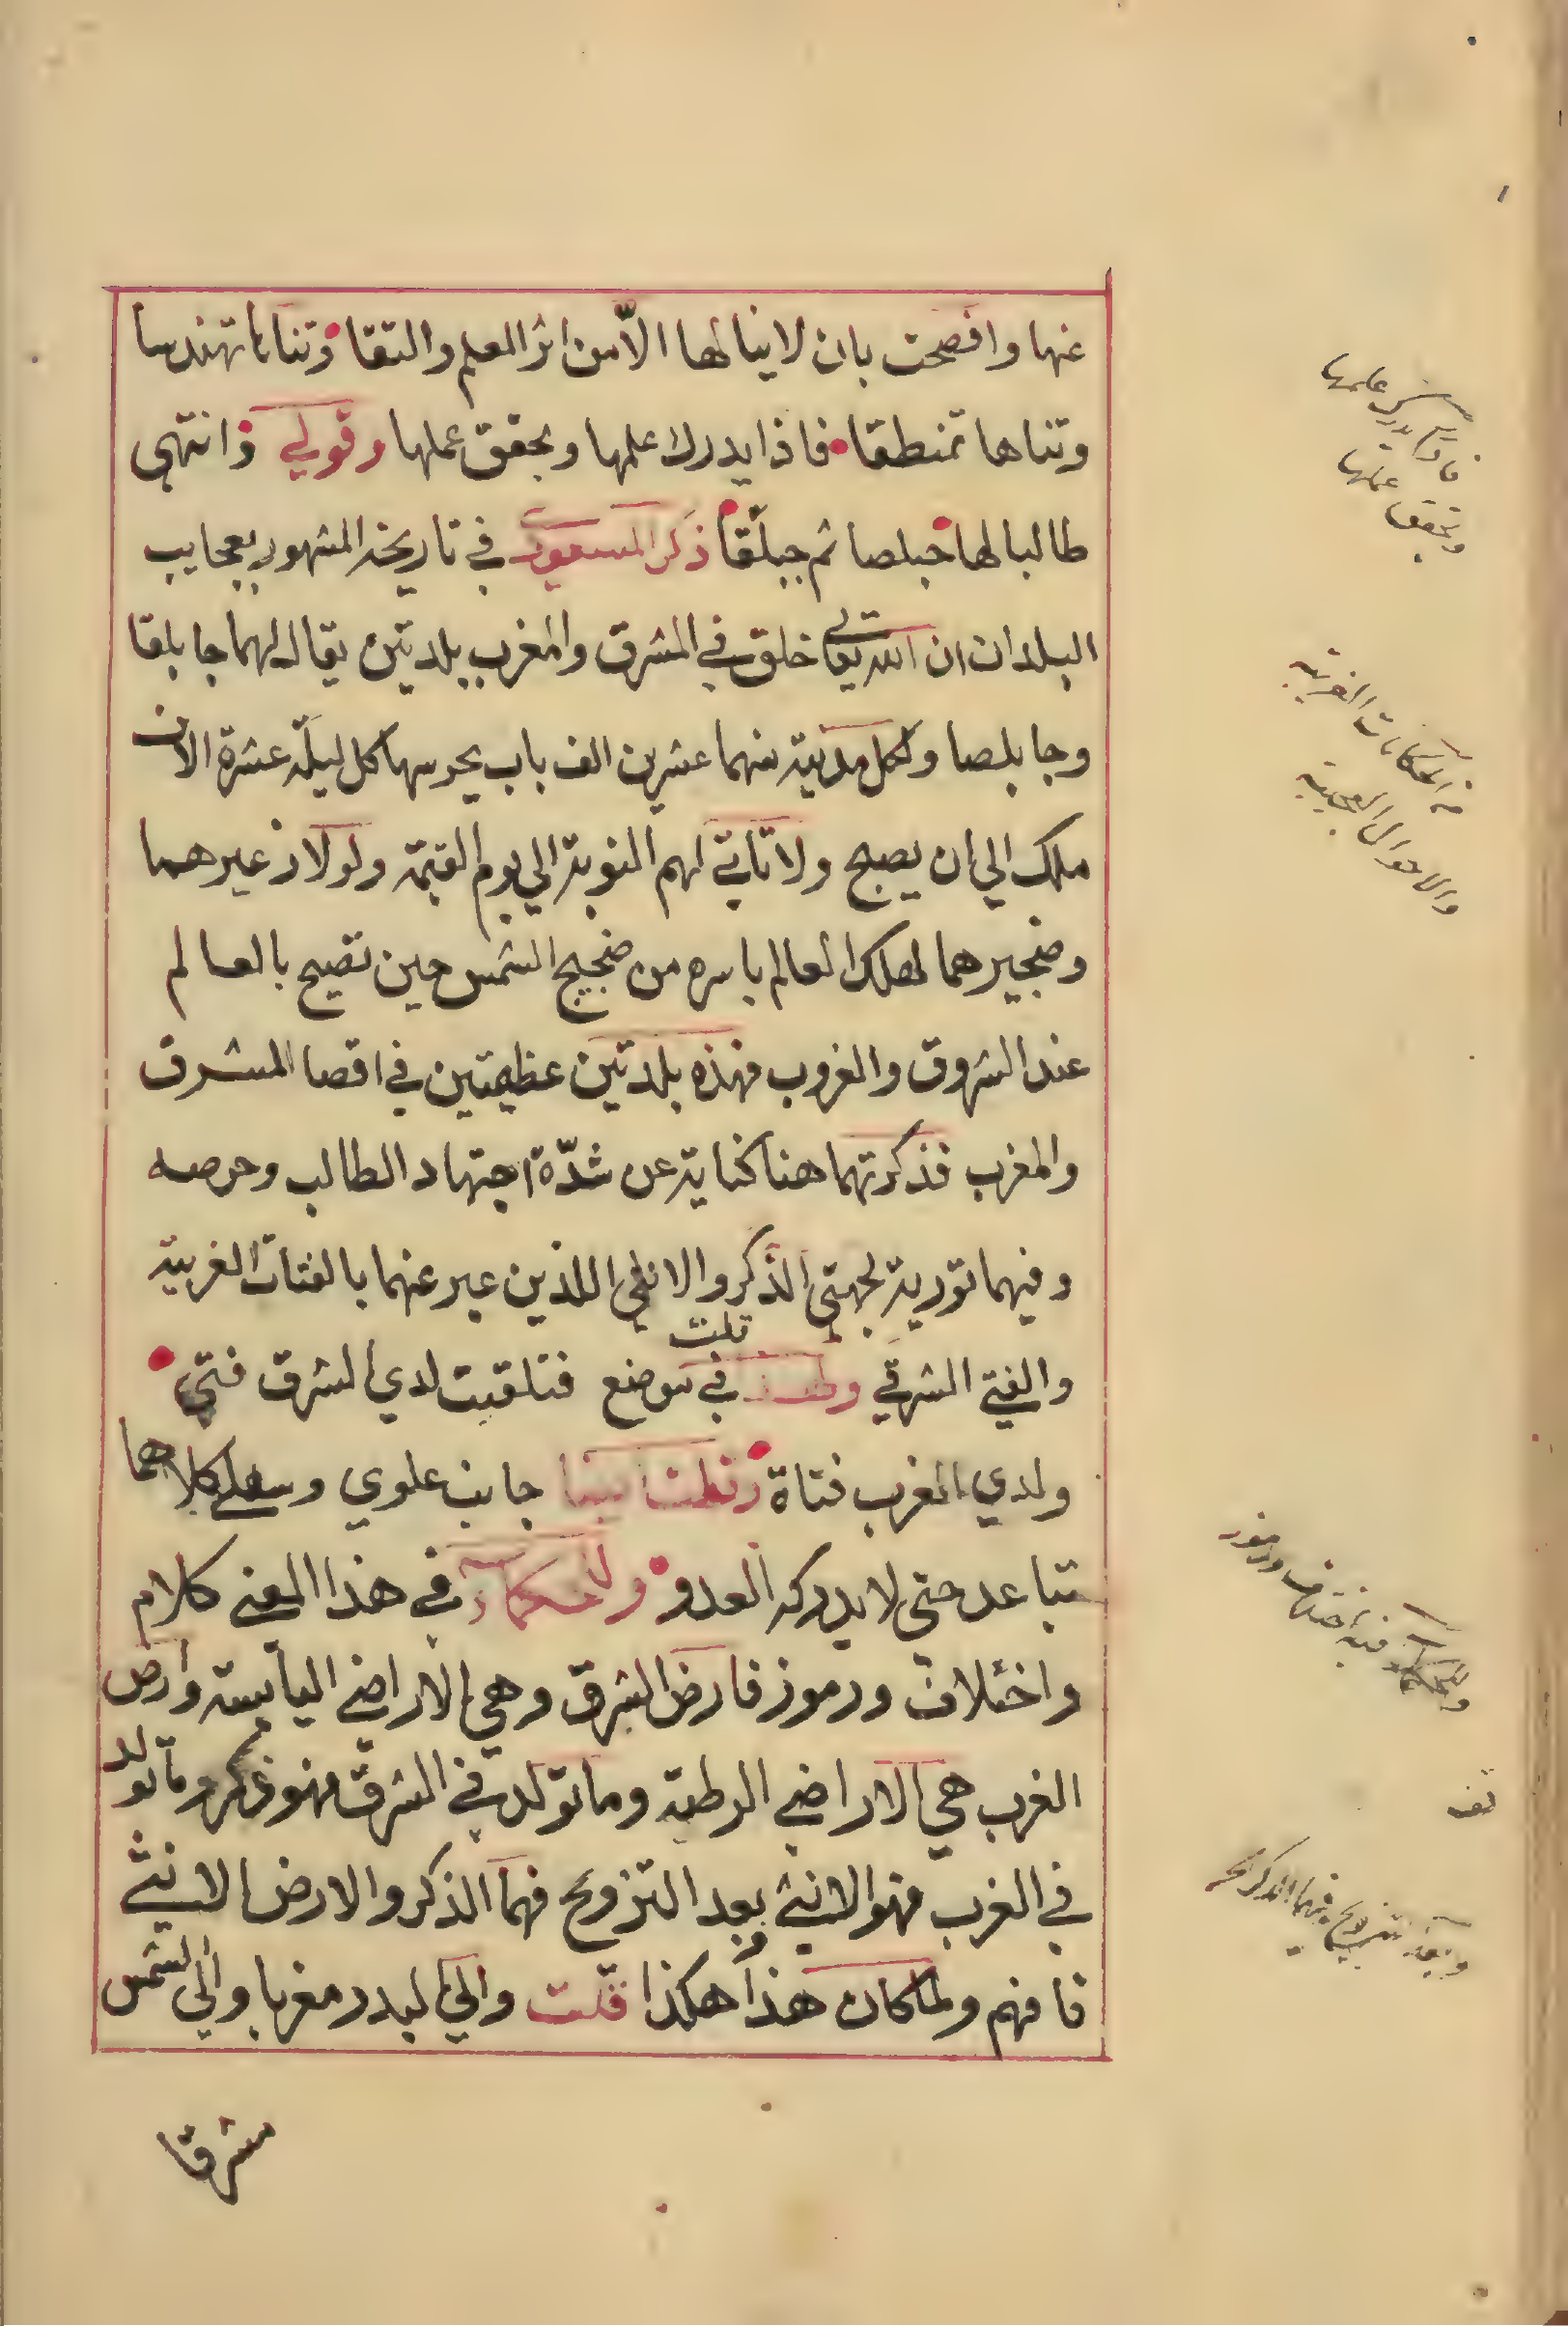 عنها وافصحت بان لا ينالها الّا من اثر العلم والتقا وتنا تهندسا
وتناها تمنطقا فاذا يدرك علمها ويحقق عملها وقولي وانتهى
طالبا لها جبلصا ثم جبلقا ذكر المسعودي في تاريخه المشهور بعجايب
البلدان ان الله تعالى خلق في المشرق والمغرب بلدتين يقال لهما جابلقا
وجابلصا ولكل مدينة منهما عشرين الف باب يحرسها كل ليلة عشرة الاف
ملك الي ان يصبح ولا تاتي لهم النوبة الي يوم القيمة ولولا زعيرهما
وضجيرهما لهلك العالم باسره من ضجيج الشمس حين تصيح بالعالم
عند الشروق والغروب فهذه بلدتين عظيمتين في اقصا المشرق
والمغرب فذكرتهما هنا كناية عن شدّة اجتهاد الطالب وحرصه
وفيهما تورية لجهتي الذكر والانثي اللذين عبر عنهما بالفتات الغربية
والفتي الشرقي قلت في موضع فتلقيت لدي الشرق فتي
ولدي المغرب فتاة جانب علوي وسفلي كلاهما
متباعد حتي لا يدركه العدو وللحكماء في هذا المعني كلام
واختلاف ورموز فارض الشرق وهي الاراضي اليابسة وارض
الغرب هي الاراضي الرطبة وما تولد في الشرق فهو ذكر وما تولد
في الغرب فهو الانثي بعد التزويج فهما الذكر والارض الانثي
فافهم ولما كان هذا هكذا قلت والي البدر مغربا والي الشمس
شرقا
علمها
ويحقق عملها
من الحكايات الغريبة
والاحوال العجيبة
وللحكماء فيه اختلاف ورموز
قف